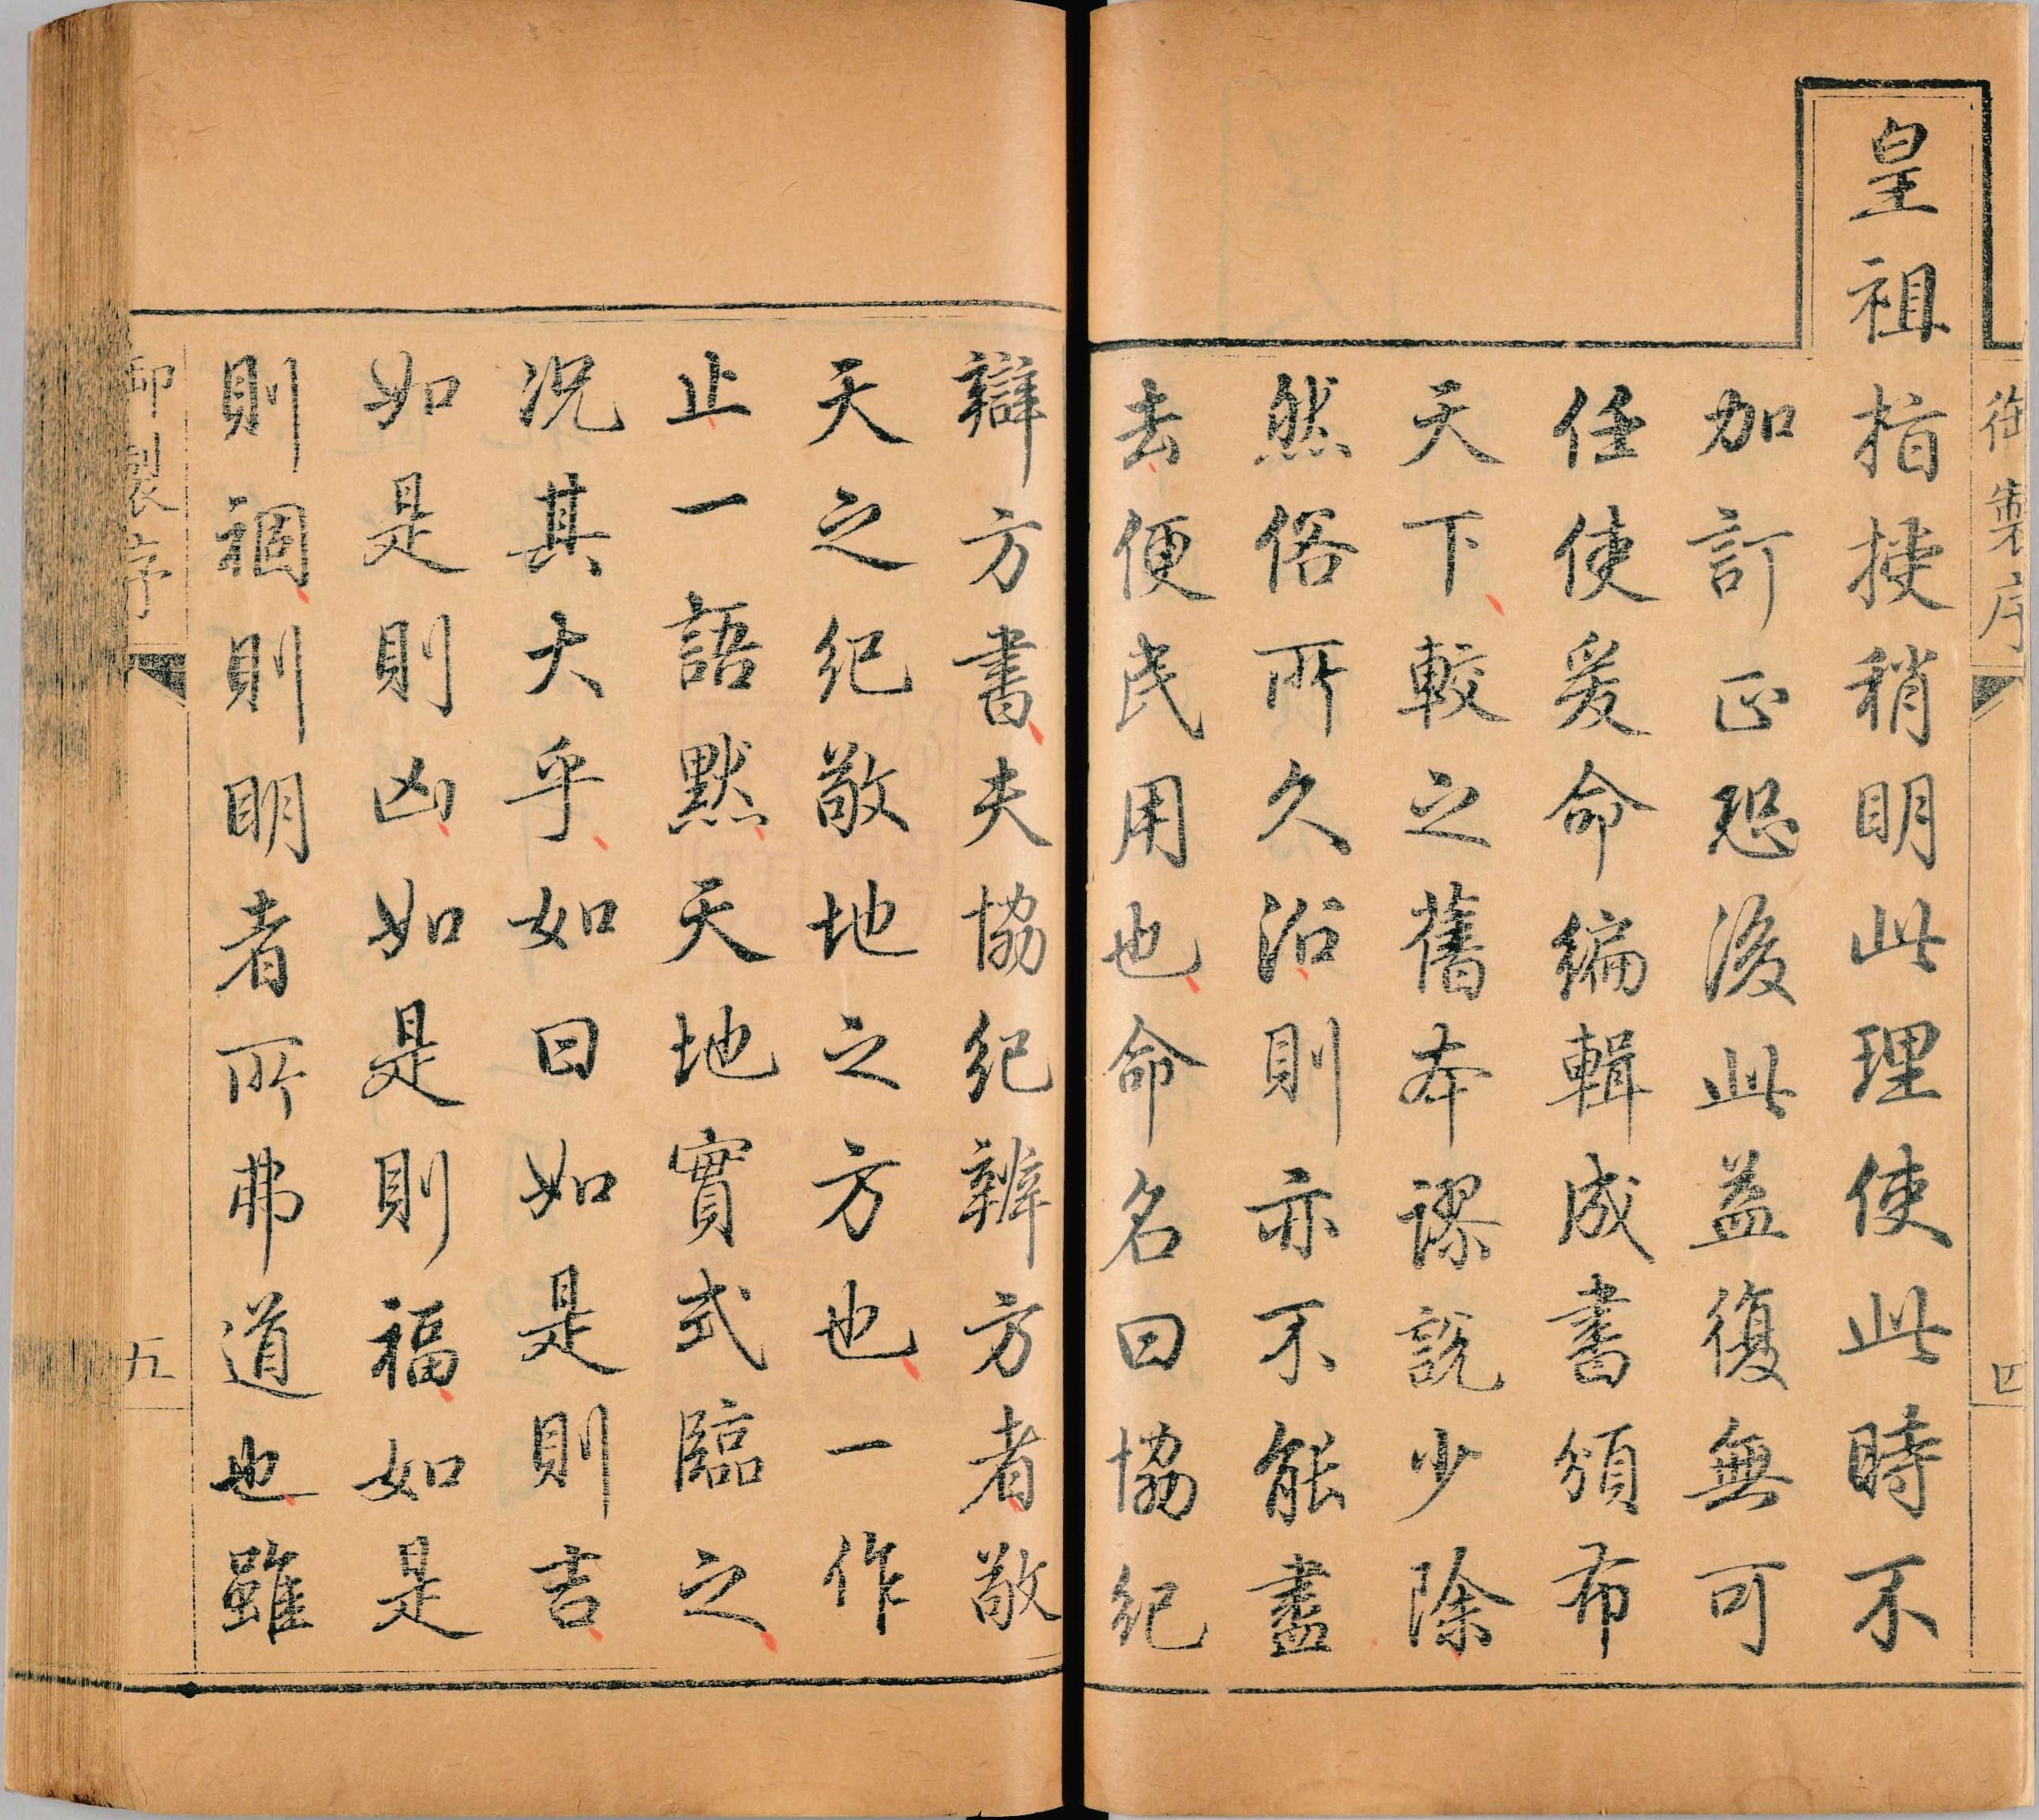 御製序
四
皇祖指授稍明此理使此時不
加訂正恐後此益復無可
任使爰命編輯成書頒布
天下較之舊本謬說少除
然俗所久沿則亦不能盡
去便民用也命名曰協紀
辯方書夫協紀辨方者敬
天之紀敬地之方也一作
止一語默天地實式臨之
况其大乎如曰如是則吉
如是則凶如是則福如是
則禍則明者所弗道也雖
御製序
五